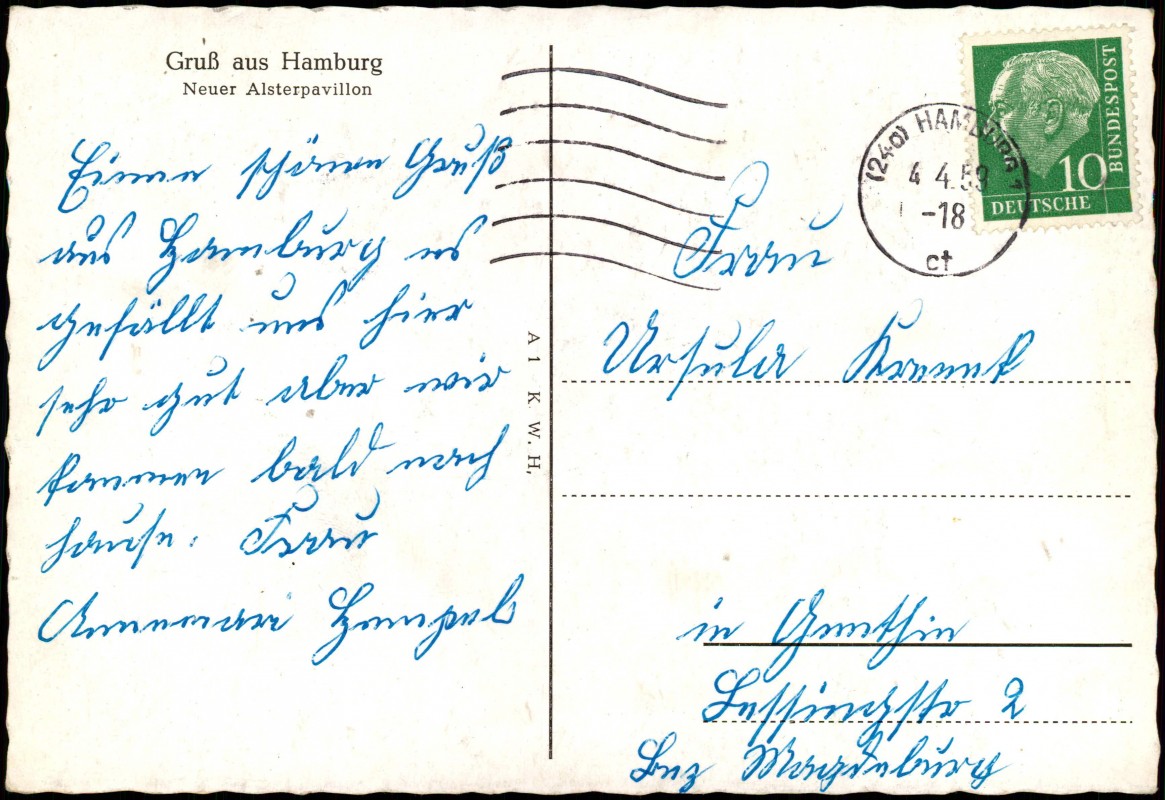 Gruß aus Hamburg
Neuer Alsterpavillon
Einen schönen Gruß
aus Hamburg es
gefällt uns hier
sehr gut aber wir
kommen bald nach
hause. Frau
Annemari Hempel
A 1 K. W. H,
(24a) HAMBURG 1
4. 4. 59
-18
ct
DEUTSCHE
BUNDESPOST
10
Frau
Ursula
in Genthin
Lessingstr 2
Bez Magdeburg